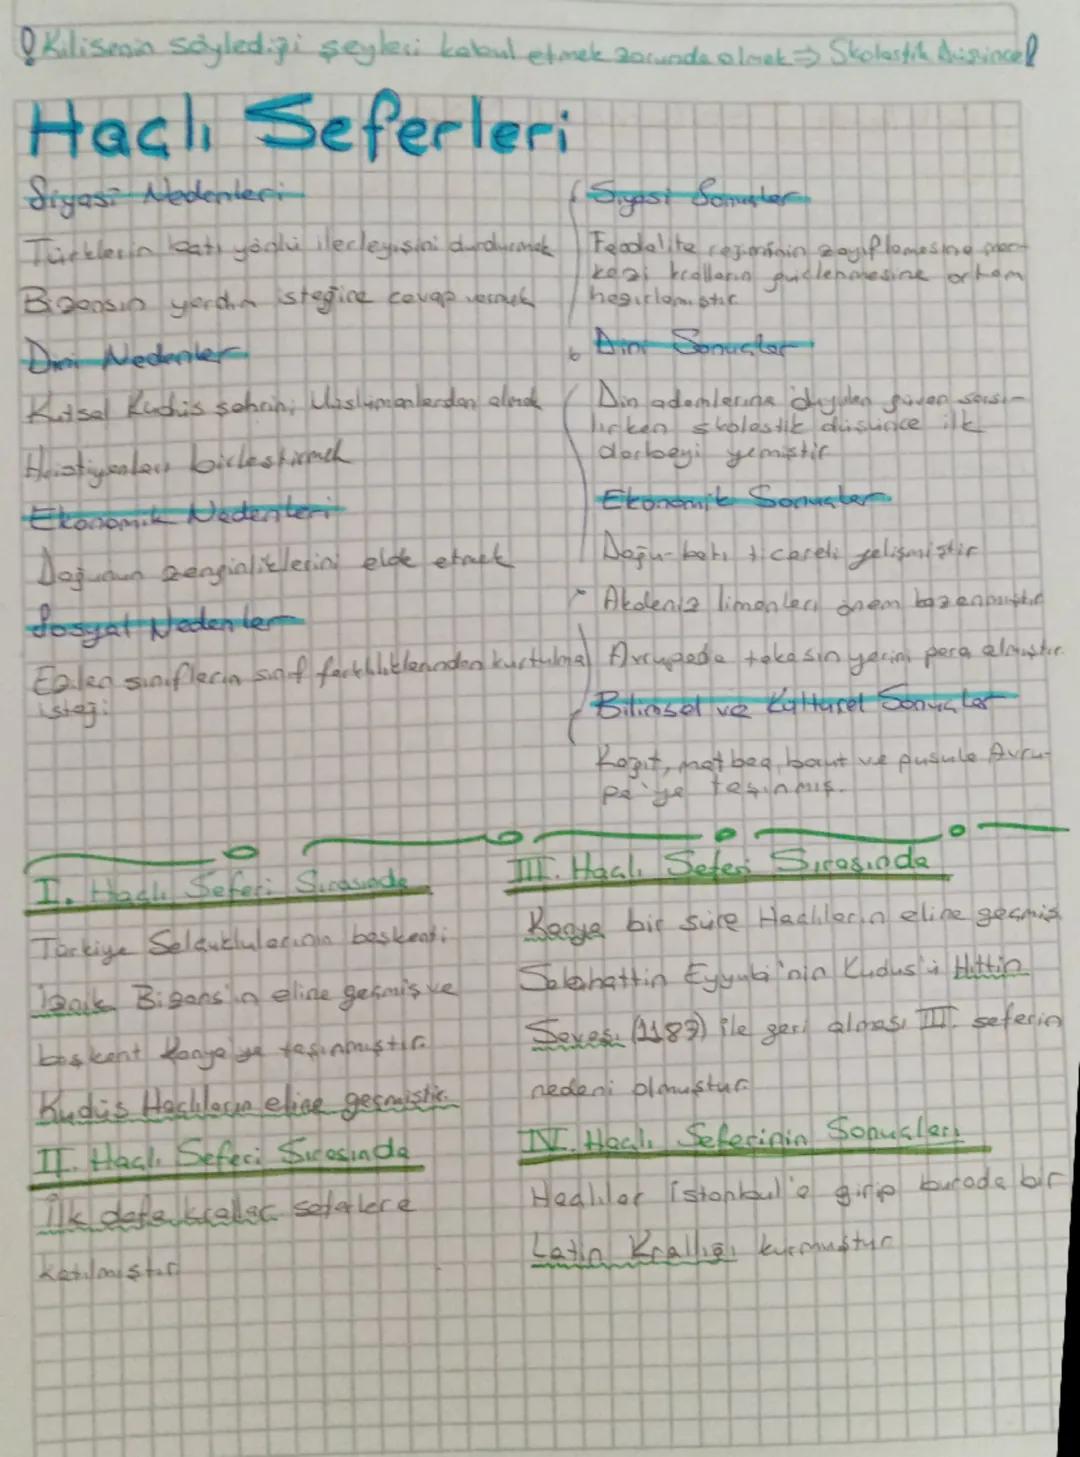 Kilisenin söylediği şeyleri kabul etmek zorunda olmak => Skolastik Düşünce
Haçlı Seferleri
Siyasi Nedenleri
Türklerin batı yönlü ilerleyişini durdurmak
Bizansın yardım isteğine cevap vermek
Dini Nedenler
Kutsal Kudüs şehrini Müslümanlardan almak
Hristiyanları birleştirmek
Ekonomik Nedenleri
Doğunun zenginliklerini elde etmek
Sosyal Nedenler
Ezilen sınıfların sınıf farklılıklarından kurtulma
isteği
Siyasi Sonuçlar
Feodalite rejiminin zayıflamasına mer-
kezi kralların güçlenmesine ortam
hazırlamıştır
Dini Sonuçlar
Din adamlarına duyulan güven sarsı-
lırken skolastik düşünce ilk
darbeyi yemiştir
Ekonomik Sonuçlar
Doğu-batı ticareti gelişmiştir
Akdeniz limanları önem kazanmıştır
Avrupada takasın yerini para almıştır.
Bilimsel ve Kültürel Sonuçlar
Kağıt, matbaa, barut ve pusula Avru-
pa'ya taşınmış.
I. Haçlı Seferi Sırasında
Türkiye Selçuklularının başkenti
İznik Bizans'ın eline geçmiş ve
başkent Konya'ya taşınmıştır.
Kudüs Haçlıların eline geçmiştir.
II. Haçlı Seferi Sırasında
İlk defa krallar seferlere
katılmıştır
III. Haçlı Seferi Sırasında
Konya bir süre Haçlıların eline geçmiş
Selahattin Eyyubi'nin Kudüs'ü Hittin
Savaşı (1187) ile geri alması III. seferin
nedeni olmuştur.
IV. Haçlı Seferinin Sonuçları
Haçlılar İstanbul'a girip burada bir
Latin Krallığı kurmuştur